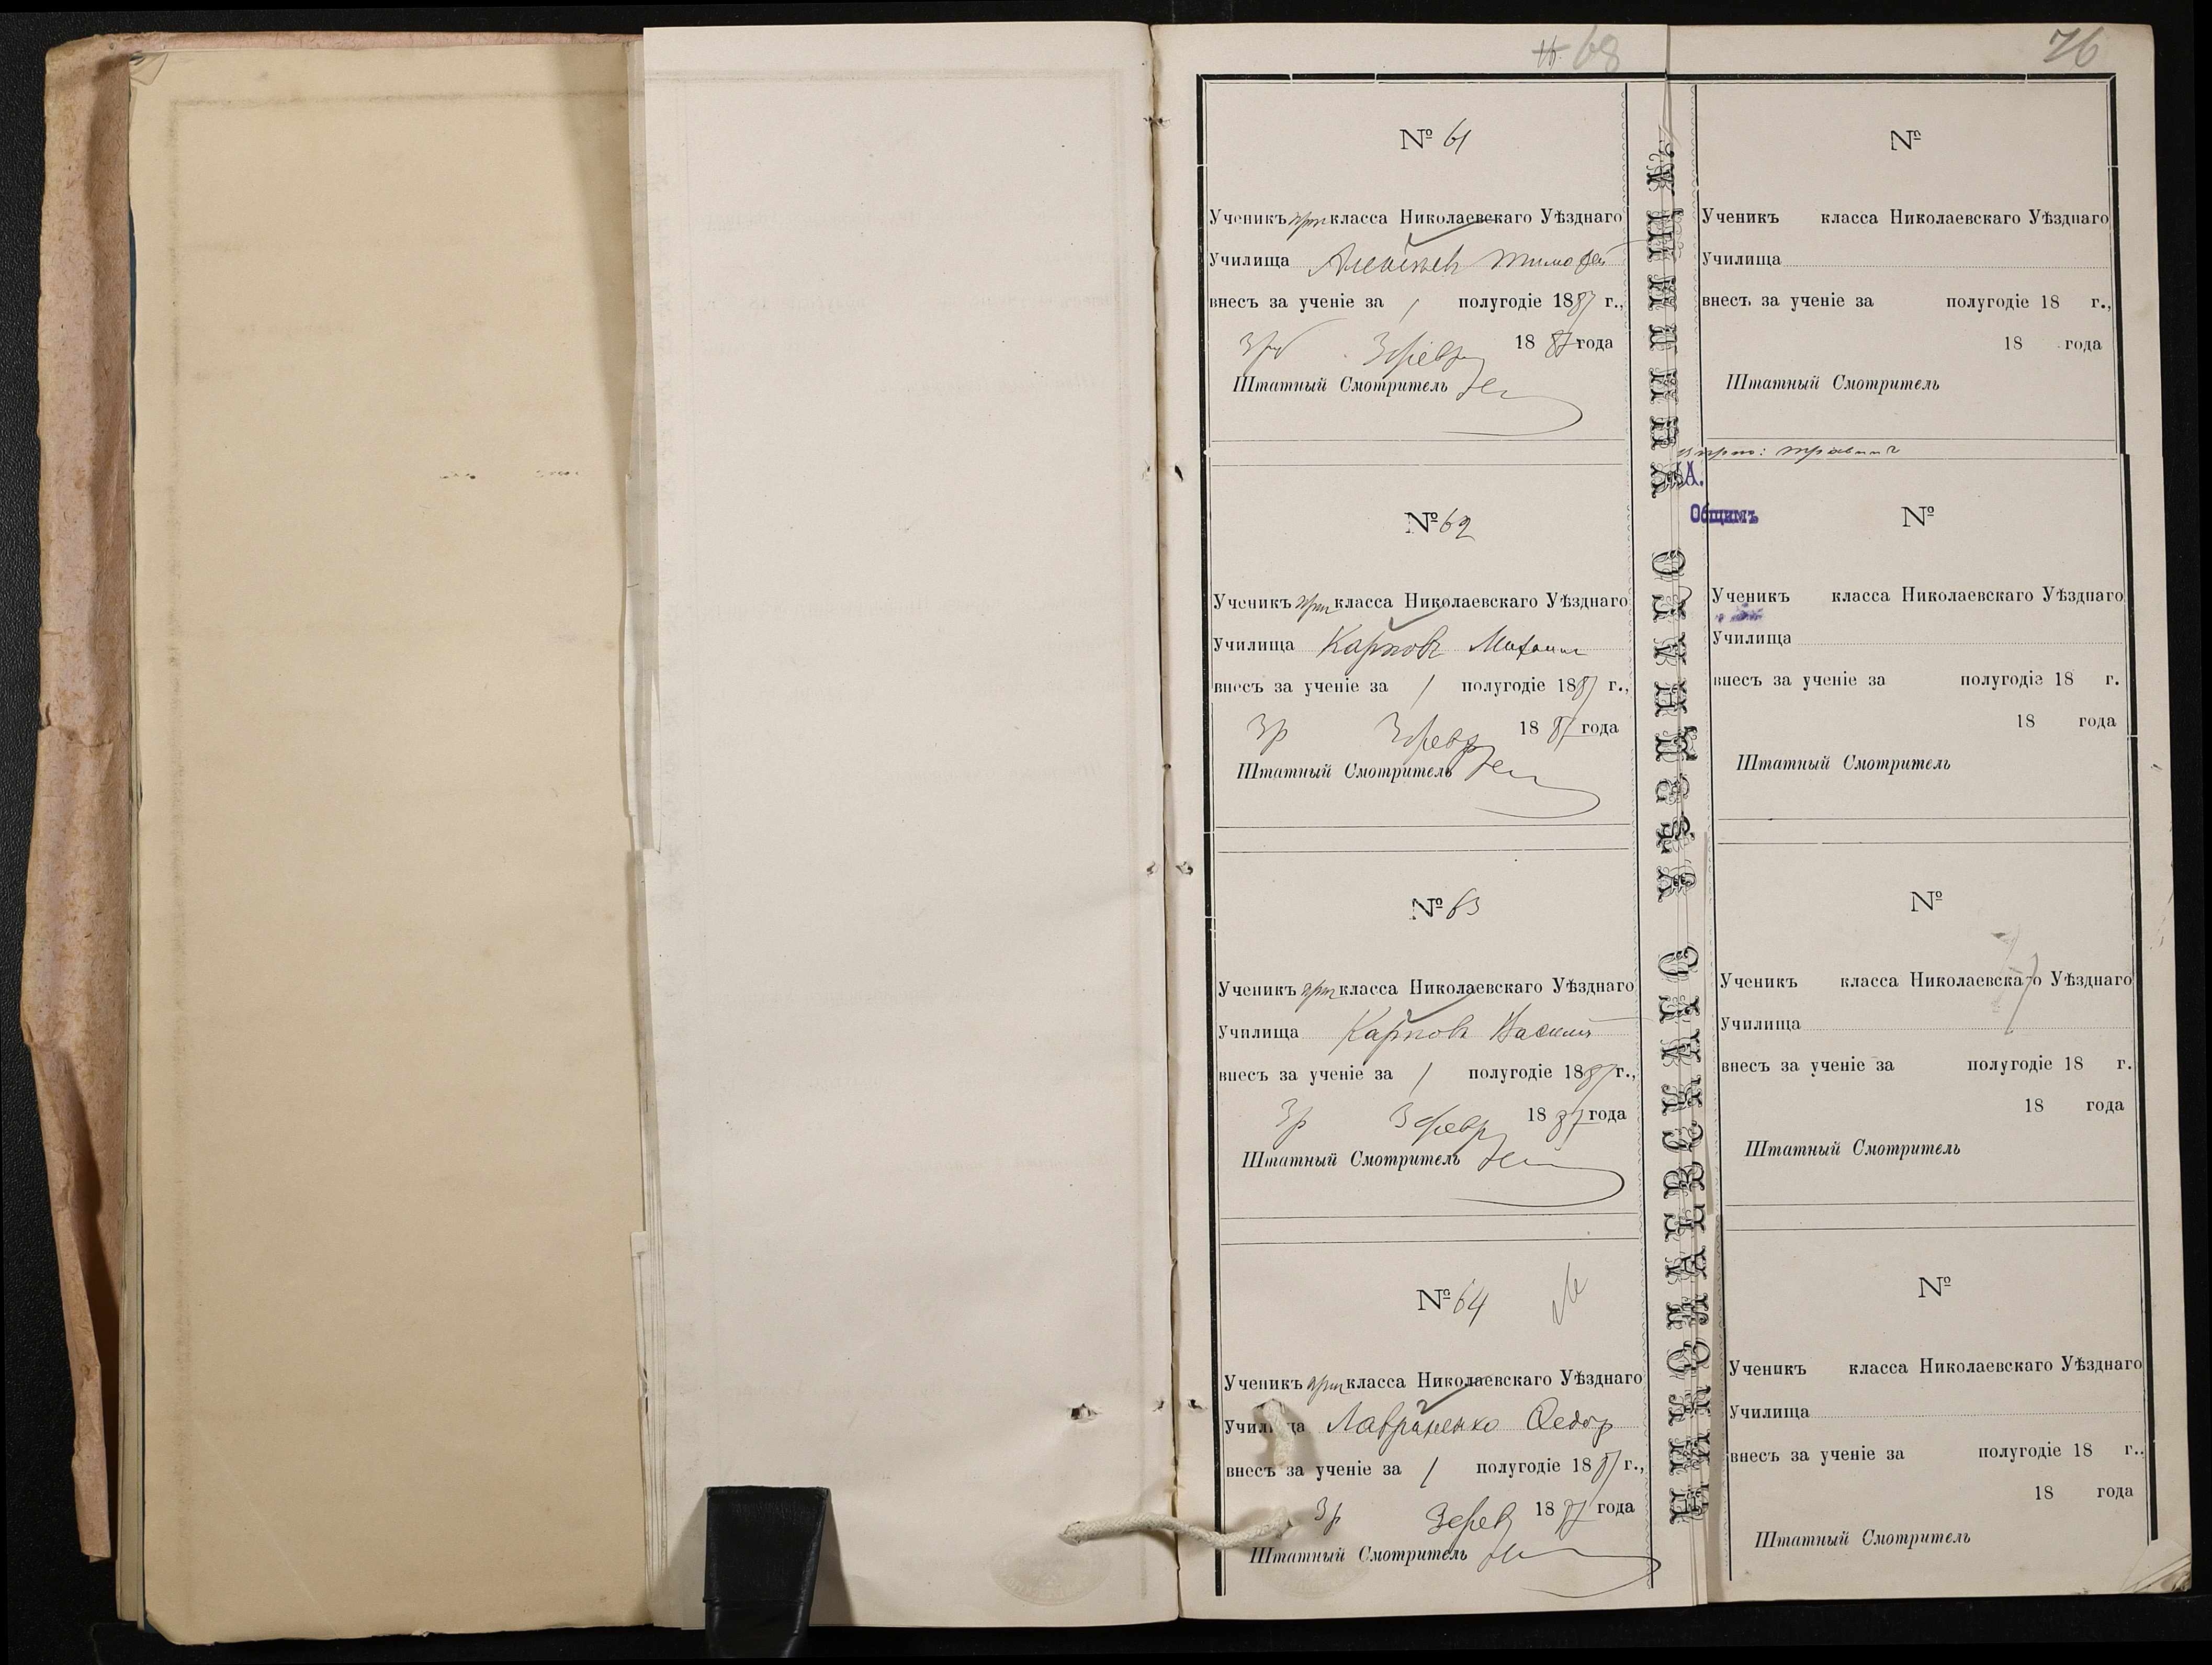 68
76
№ 61
Ученикъ при класса Николаевскаго Уѣзднаго
Училища Алексѣевъ Тимофей
внесъ за ученіе за 1 полугодіе 1887 г.,
3 руб 3 февр 1887 года
Штатный Смотритель
№ 62
Ученикъ при класса Николаевскаго Уѣзднаго
Училища Карповъ Михаилъ
внесъ за ученіе за 1 полугодіе 1887 г.,
3 р 3 февр 1887 года
Штатный Смотритель
№ 63
Ученикъ при класса Николаевскаго Уѣзднаго
Училища Карповъ Василій
внесъ за ученіе за 1 полугодіе 1887 г.,
3 р 3 февр 1887 года
Штатный Смотритель
№ 64
Ученикъ при класса Николаевскаго Уѣзднаго
Училища Лавриненко Федоръ
внесъ за ученіе за 1 полугодіе 1887 г.,
3 р 3 фев 1887 года
Штатный Смотритель
№
Ученикъ класса Николаевскаго Уѣзднаго
Училища
внесъ за ученіе за полугодіе 18 г.,
18 года
Штатный Смотритель
А.
Общимъ
№
Ученикъ класса Николаевскаго Уѣзднаго
Училища
внесъ за ученіе за полугодіе 18 г.
18 года
Штатный Смотритель
№
Ученикъ класса Николаевскаго Уѣзднаго
Училища
внесъ за ученіе за полугодіе 18 г.
18 года
Штатный Смотритель
№
Ученикъ класса Николаевскаго Уѣзднаго
Училища
внесъ за ученіе за полугодіе 18 г.
18 года
Штатный Смотритель